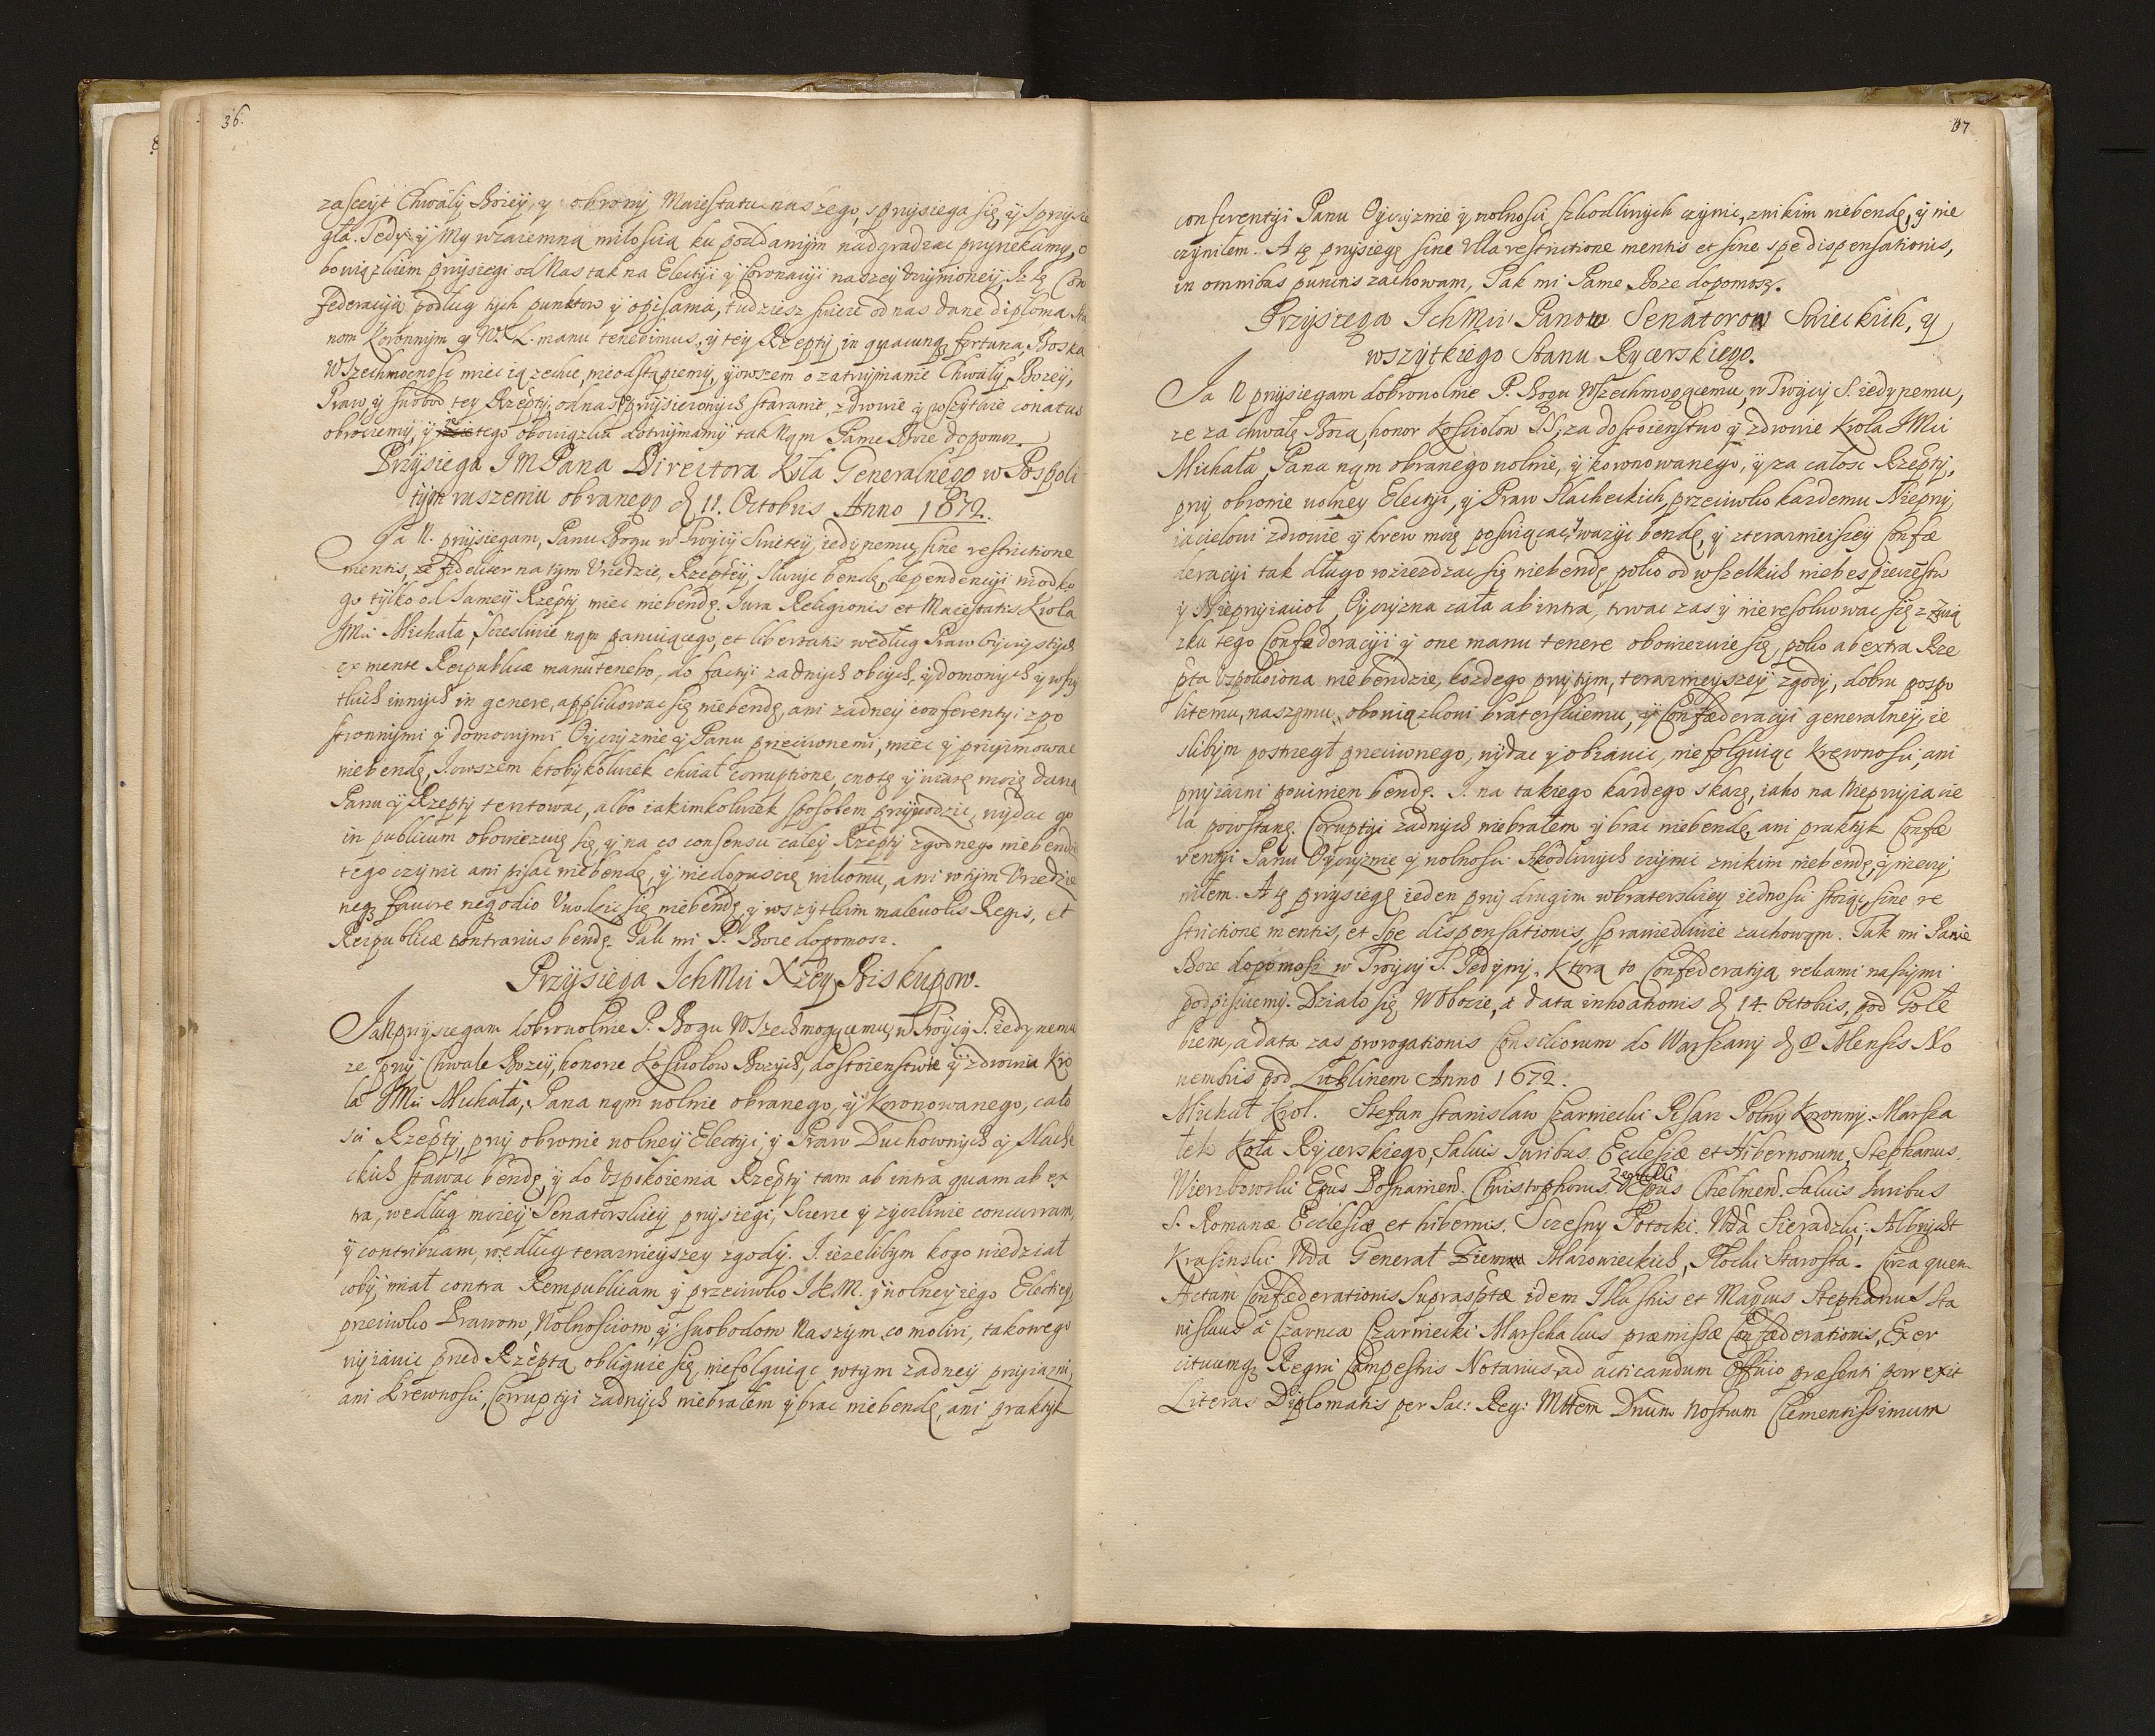 36.
zasczyt Chwały Bozey, y obrony Maiestatu naszego, sprzysiega się, y sprzysie
gła. Tedy y My wzaiemną miłoscią ku poddanym nadgradzac przyrzekamy, o
bowiązkiem przysiegi od Nas tak na Electyi y Coronacyi naszey uczynioney, Iz tę Con
federacyią podług tych punktow y opisania, tudziesz swieze od nas dane diploma Sta
nom Koronnym y W.X.L. manu tenebimus, y tey Rzeptej in quacunq fortuna Boska
Wszechmocnosc miec ią zechce, nieodstąpiemy, y owszem o zatrzymanie Chwały Bozey,
Praw y swobod tey Rzeptej, od nas poprzysiezonych staranie, zdrowie y wszytkie conatus
obrociemy, y tego obowiązku dotrzymamy tak Nąm Panie Boze dopomoz.
Przysiega JMPana Directora Koła Generalnego w Pospoli
tym ruszeniu obranego d. 11. Octobris Anno 1672.
Ja N. przysiegam, Panu Bogu w Troycy Swietey iedynemu, sine restrictione
mentis, ze fideliter na tym Urzedzie, Rzeptey, słuzyc bendę, dependencyi niodko
go tylko od samey Rzeptej miec niebendę. Iura Religionis et Maiestatis Krola
JMci Michała, sczesliwie nąm panuiącego, et libertatis według Praw Oyczystych
ex mente Reipublicæ manutenebo, do factyi zadnych obcych, y domowych y wszy
tkich innych in genere, applikowac się niebendę, ani zadney conferentyi z po
stronnymi y domowymi Oyczyznie y Panu przeciwnemi, miec y przyimowac
niebendę, Iowszem ktobykolwiek chciał corruptione, cnotę y wiarę moię daną
Panu y Rzeptej tentowac, albo iakimkolwiek sposobem przywodzic, wydac go
in publicum obowiezuię się, y na co consensu całey Rzeptej zgodnego niebendzie
tego czynic ani pisac niebendę, y niedopuszczę nikomu, ani w tym Urzedzie
neq favore neq odio Uwodzic się niebendę y wszytkim malevolis Regis, et
Reipublicæ contrarius bendę. Tak mi P. Boze dopomoz.
Przysiega IchMci Xzey Biskupow.
Ja N przysiegam dobrowolnie P. Bogu Wszechmogącemu, w Troycy S. iedynemu
ze przy Chwale Bozey, honorze Kosciołow Bozych, dostoienstwie y zdrowia Kro
la JMci Michała, Pana nąm wolnie obranego, y Koronowanego, cało
sci Rzeptej, przy obronie wolney Electyi y Praw Duchownych y Slache
ckich stawac bendę, y do Uspokoienia Rzeptej tam ab intra quam ab ex
tra, według moiey Senatorskiey przysiegi, Sczerze y zyczliwie concurram,
y contribuam, według terazniejszey zgody. I iezelibym kogo wiedział
coby miał contra Rempublicam y przeciwko J.K.M. y wolney iego Electiey
przeciwko Prawom, Wolnosciom, y swobodom Naszym, co moliri, takowego
wyiawic przed Rzeptą obliguię się, niefolguiąc w tym zadney przyiazni,
ani Krewnosci, Corruptyi zadnych niebrałem y brac niebendę, ani praktyk
37
conferentyi Panu Oyczyznie y wolnosci szkodliwych czynic, znikim niebendę, y nie
czyniłem. A tę przysiegę sine Ulla restrictione mentis et sine spe dispensationis,
in omnibus punctis zachowam, Tak mi Panie Boze dopomosz.
Przysiega IchMci Panow Senatorow Swieckich, y
wszytkiego Stanu Rycerskiego.
Ja N przysiegam dobrowolnie P. Bogu Wszechmogącemu, w Troycy S. iedynemu,
ze za chwałę Bozą, honor Kosciołow SS, za dostoienstwo y zdrowie Krola JMci
Michała, Pana nąm obranego wolnie, y koronowanego, y za całosc Rzeptej,
przy obronie wolney Electyi, y Praw Slacheckich, przeciwko kazdemu Nieprzy
iacielowi zdrowie y krew moię poswiącac, y wazyc bendę, y z terazniejszey Confœ
deracyi tak długo rozierdzac się niebendę, poko od wszelkich niebespieczestw
y Nieprzyiacioł, Oyczyzna cała ab intra, trwac zas y nieresoluowac się z zwią
zku tego Confæderacyji y one manu tenere obowiezuie się, poko ab extra Rze
pta Uspokoiona niebendzie, kozdego przy tym, terazniejszey zgody, dobru pospo
litemu, naszemu obowiązkowi braterskiemu, y Confæderacyi generalney, ie
slibym postrzegł przeciwnego, wydac y obiawic, niefolguiąc Krewnosci, ani
przyiazni powinien bendę. I na takiego kazdego skazę, iako na Nieprzyiacie
la powstanę. Coruptyi zadnych niebrałem y brac niebendę, ani praktyk Confe
rentyi Panu Oyczyznie y wolnosci szkodliwych czynic znikim niebendę, y nieczy
niłem. A tę przysiegę ieden przy drugim w braterskiey iednosci stoiąc, sine re
strictione mentis, et spe dispensationis, sprawiedliwie zachowąm. Tak mi Panie
Boze dopomosz w Troycy S. Jedyny. Ktorą to Confederatyą rekami naszymi
podpisuiemy. Działo się W obozie, a data inchoationis d. 14. Octobris, pod Gołę
biem, a data zas prorogationis Consiliorum do Warszawy d. 8 Mensis No
vembris pod Lublinem Anno 1672.
Michał Krol. Stefan Stanislaw Czarniecki Pisarz Polny Koronny. Marsza
łek Koła Rycerskiego, Salvis Iuribus Ecclesiæ et Hibernorum, Stephanus
Wierzbowski Epus Posnanien. Christophorus Zegocki Epus Chelmen. Salvis Iuribus
S. Romanæ Ecclesiæ et hibernis. Sczesny Potocki. Wda Sieradzki. Albrycht
Krasinski Wda Generał Ziemia Mazowieckich, Płocki Starosta. Circa quem
Actum Confæderationis suprasptæ idem Illustris et Magcus Stephanus Sta
nislaus a Czarnca Czarniecki Marschalcus præmissæ Confæderationis, Exer
cituumq Regni Campestris Notarius, ad acticandum Officio præsenti porrexit
Literas Diplomatis per Sac: Reg: Mttem Dnum Nostrum Clementissimum